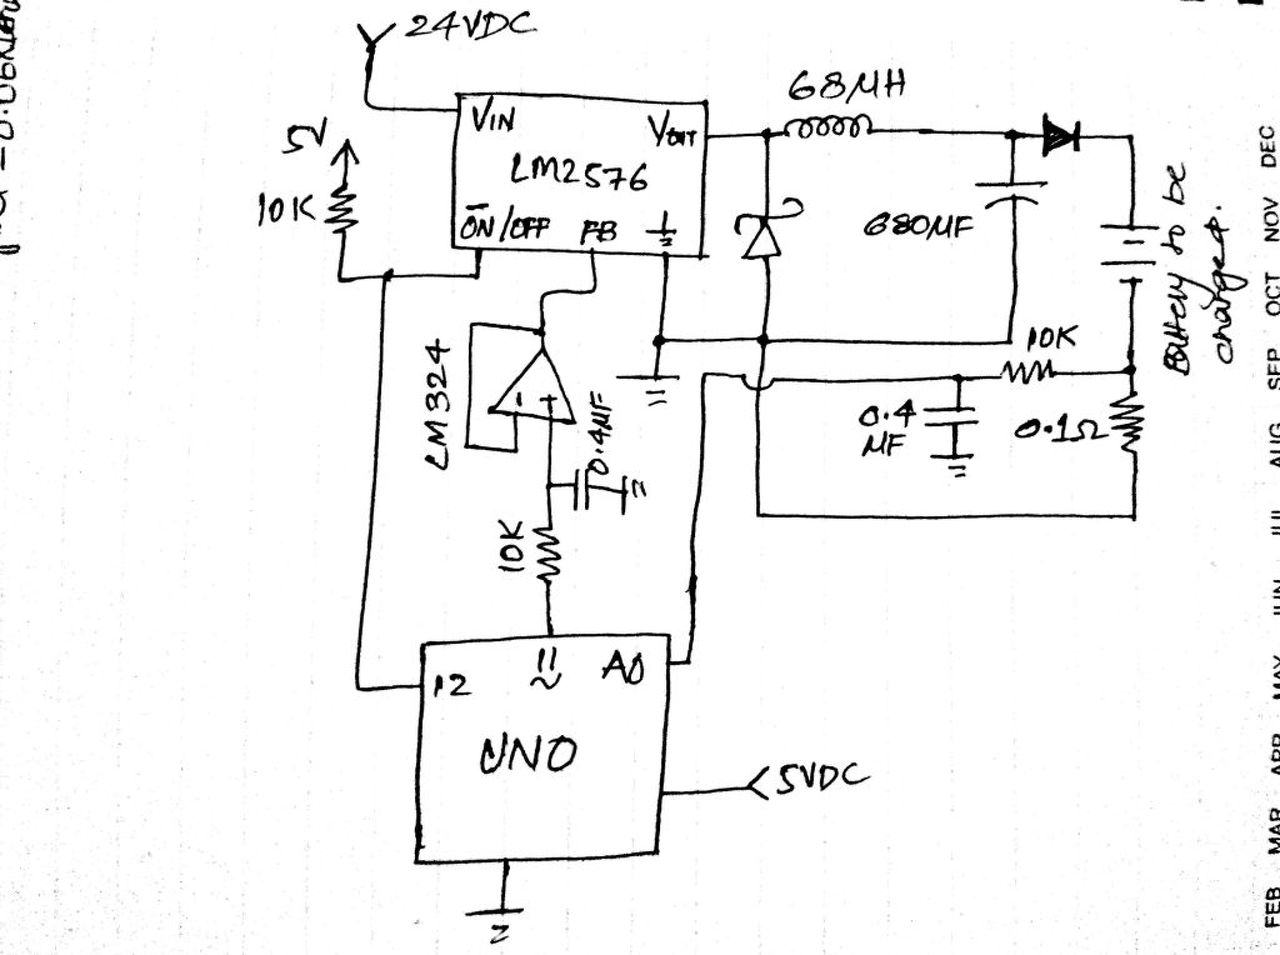 24VDC
68µH
5V
VIN
VOUT
LM2576
10K
ON/OFF
FB
680µF
Battery to be
charged.
LM324
0.4µF
10K
0.4
µF
0.1Ω
10K
12
11
~
A0
UNO
5VDC
FEB MAR APR MAY JUN JUL AUG SEP OCT NOV DEC